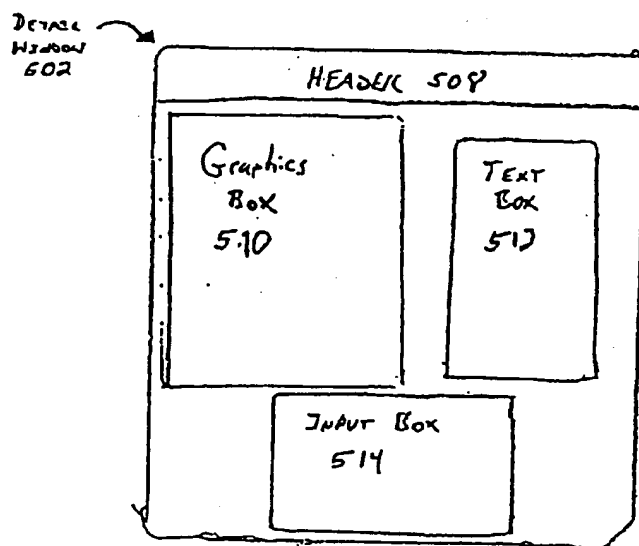 DETAIL
WINDOW
602
HEADER 508
Graphics
Box
510
TEXT
Box
512
INPUT BOX
514